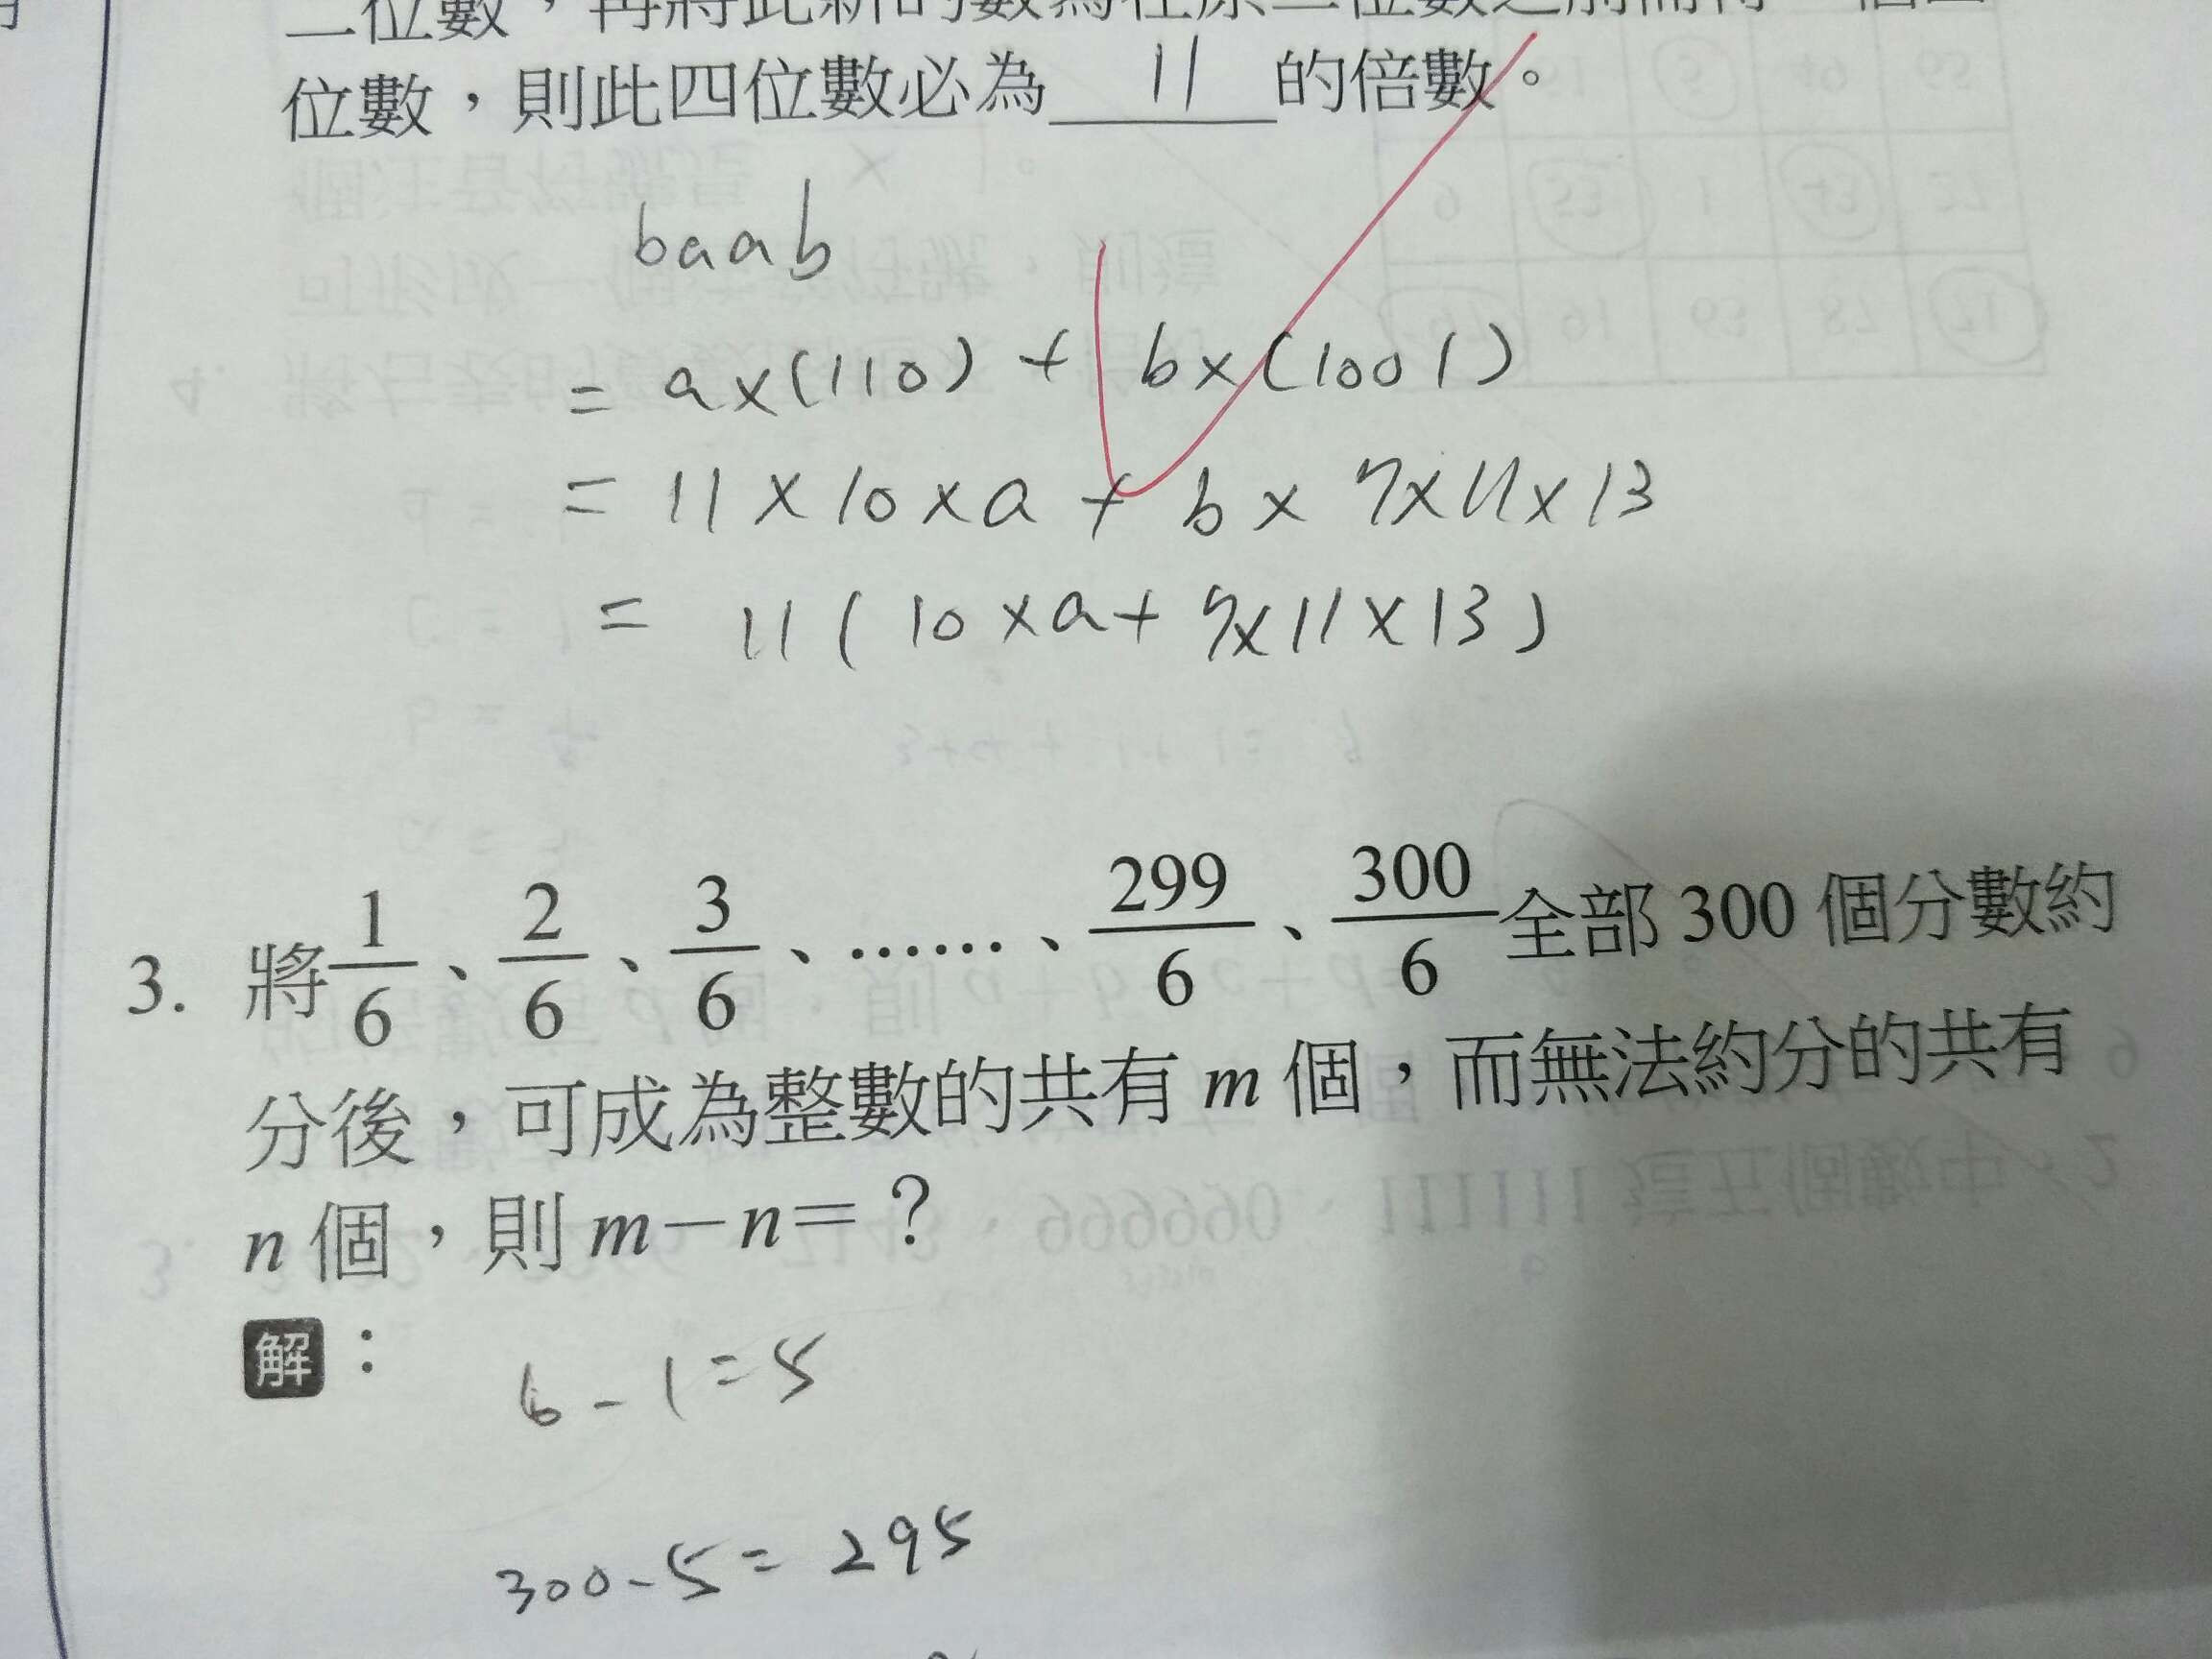 二位數，再將此新的數寫在原二位數之前而得一個四
位數，則此四位數必為 11 的倍數。
baab
= a×(110) + b×(1001)
= 11×10×a + b×7×11×13
= 11(10×a+7×11×13)
3. 將1/6、2/6、3/6、……、299/6、300/6全部300個分數約
分後，可成為整數的共有m個，而無法約分的共有
n個，則m－n＝？
解：
6-1=5
300-5=295